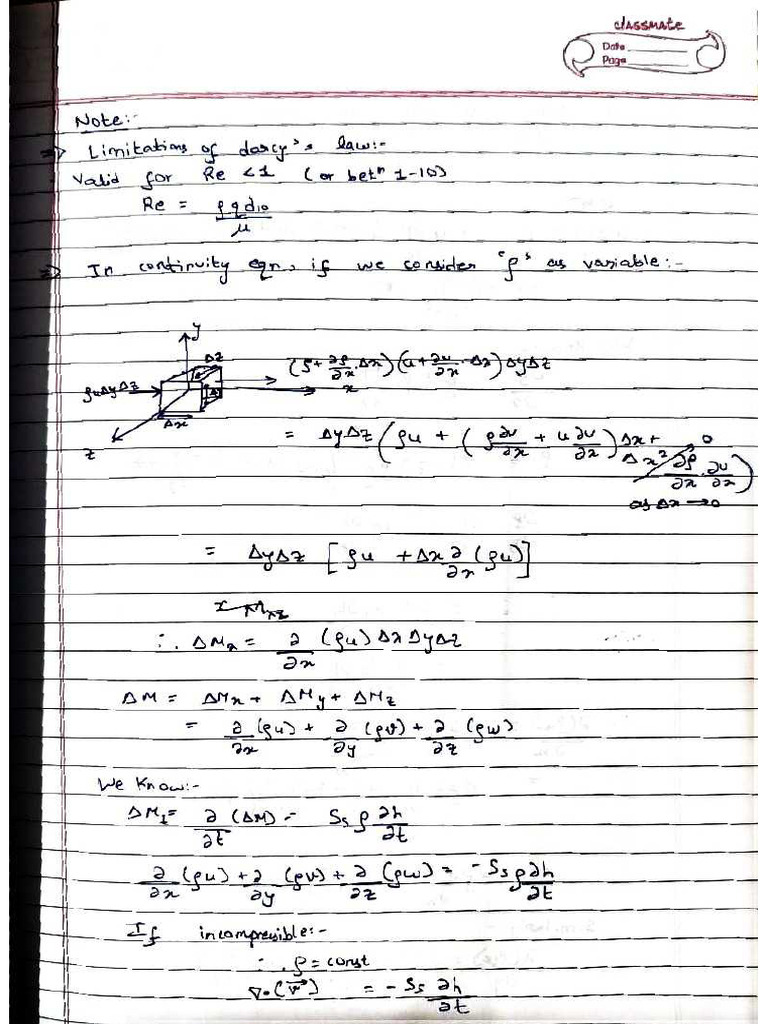 classmate
Date
Page
Note:-
⇒ Limitations of darcy's law:-
Valid for Re < 1 (or betⁿ 1-10)
Re = ρ q d₁₀ / μ
⇒ In continuity eqn, if we consider 'ρ' as variable:-
y
Δz
ρuΔyΔz
(ρ + ∂ρ/∂x · Δx)(u + ∂u/∂x · Δx) ΔyΔz
x
Δx
z
= ΔyΔz (ρu + (ρ ∂u/∂x + u ∂υ/∂x) Δx + Δx² ∂ρ/∂x · ∂u/∂x) 0
as Δx → 0
= ΔyΔz [ρu + Δx ∂/∂x (ρu)]
∴ ΔMx = ∂/∂x (ρu) Δx Δy Δz
ΔM = ΔMx + ΔMy + ΔMz
= ∂/∂x (ρu) + ∂/∂y (ρv) + ∂/∂z (ρw)
We Know:-
ΔMt = ∂/∂t (ΔM) = Ss ρ ∂h/∂t
∂/∂x (ρu) + ∂/∂y (ρv) + ∂/∂z (ρw) = -Ss ρ ∂h/∂t
If incompressible:-
∴ ρ = const
∇·(v⃗) = -Ss ∂h/∂t